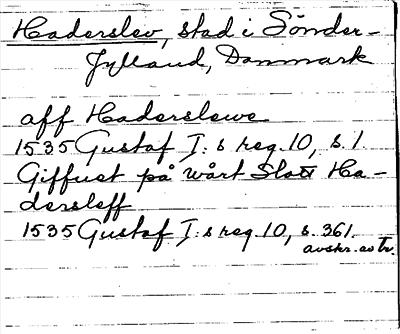 Haderslev, stad i Sönder-
Jylland, Danmark
aff Haderslewe
1535 Gustaf I:s reg. 10, s. 1.
Giffuet på wårt Slott Ha-
dersleff
1535 Gustaf I:s reg. 10, s. 361.
avskr. av tr.